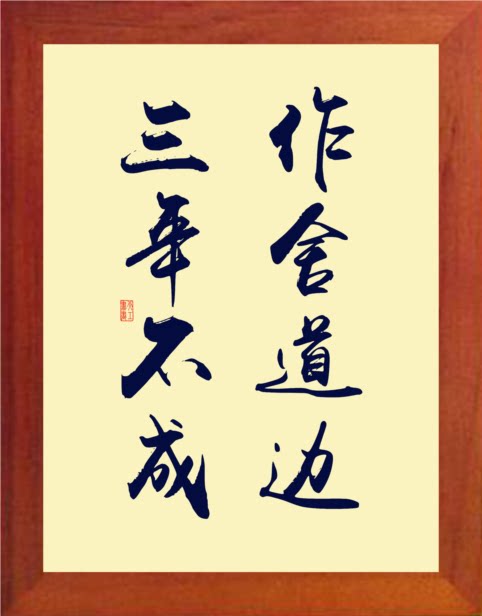 作舍道边
三年不成